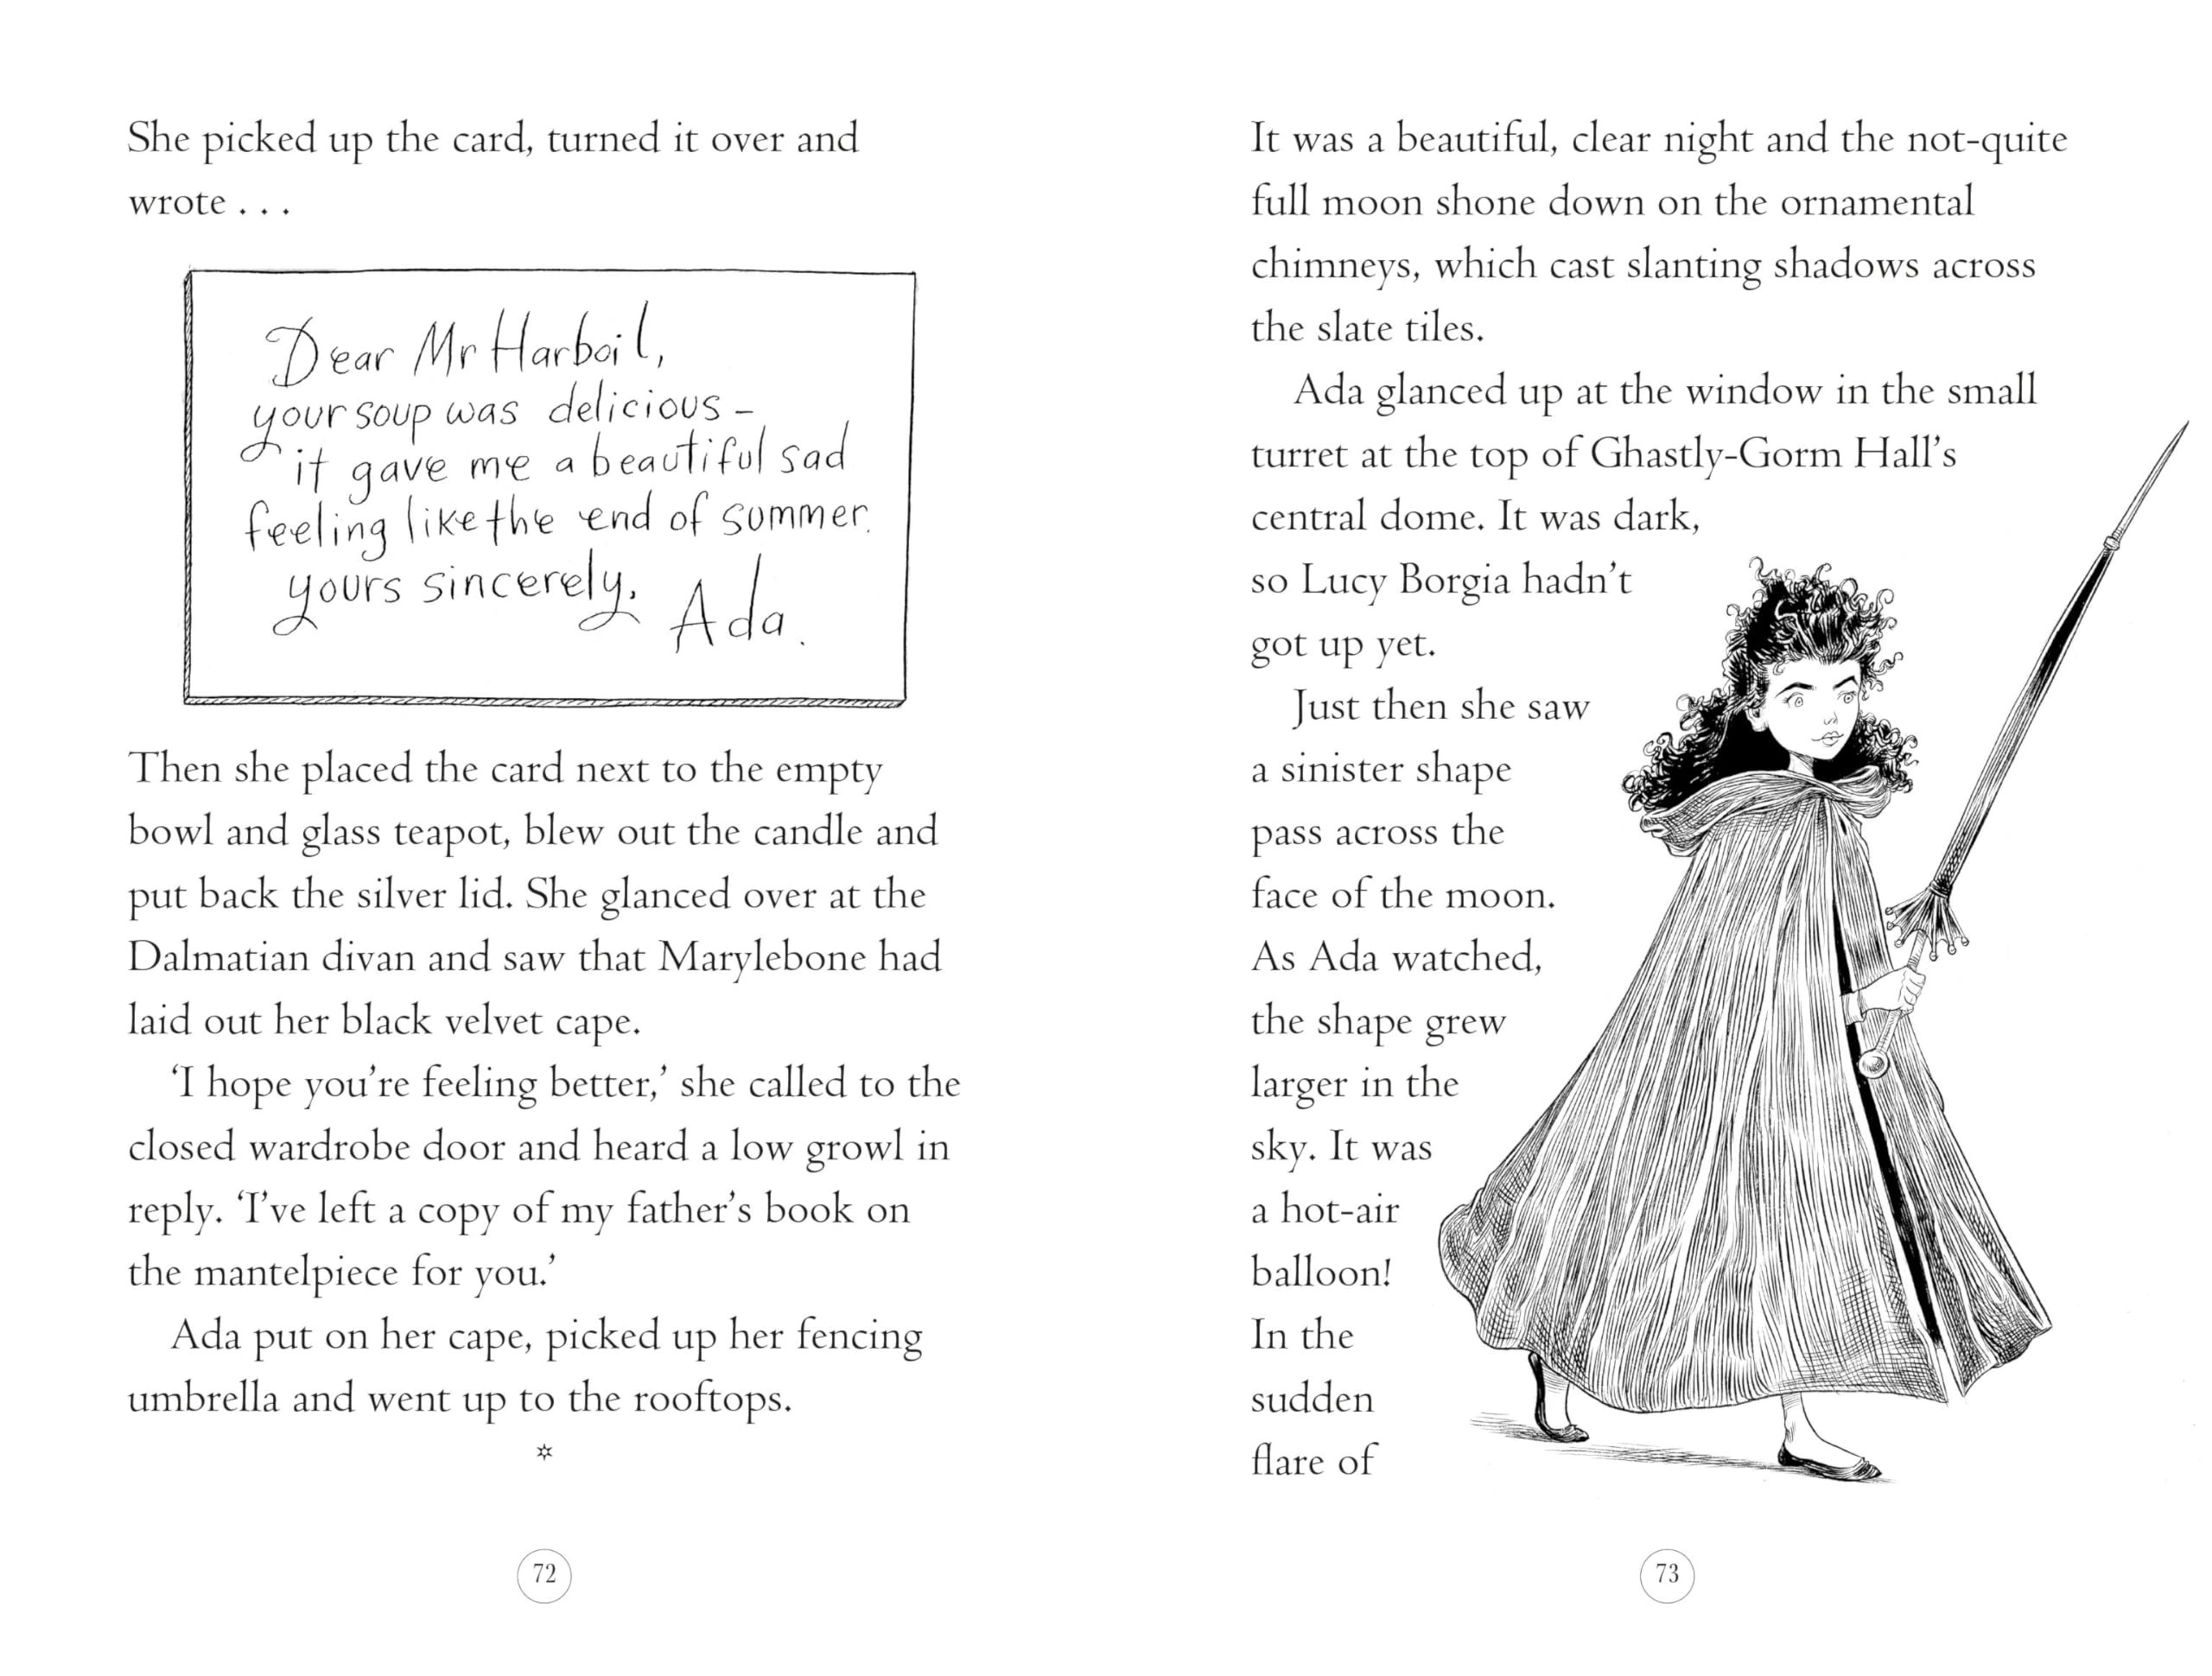 She picked up the card, turned it over and
wrote . . .
Dear Mr Harboil,
your soup was delicious –
it gave me a beautiful sad
feeling like the end of summer.
yours sincerely,
Ada.
Then she placed the card next to the empty
bowl and glass teapot, blew out the candle and
put back the silver lid. She glanced over at the
Dalmatian divan and saw that Marylebone had
laid out her black velvet cape.
‘I hope you’re feeling better,’ she called to the
closed wardrobe door and heard a low growl in
reply. ‘I’ve left a copy of my father’s book on
the mantelpiece for you.’
Ada put on her cape, picked up her fencing
umbrella and went up to the rooftops.
✡
72
It was a beautiful, clear night and the not-quite
full moon shone down on the ornamental
chimneys, which cast slanting shadows across
the slate tiles.
Ada glanced up at the window in the small
turret at the top of Ghastly-Gorm Hall’s
central dome. It was dark,
so Lucy Borgia hadn’t
got up yet.
Just then she saw
a sinister shape
pass across the
face of the moon.
As Ada watched,
the shape grew
larger in the
sky. It was
a hot-air
balloon!
In the
sudden
flare of
73